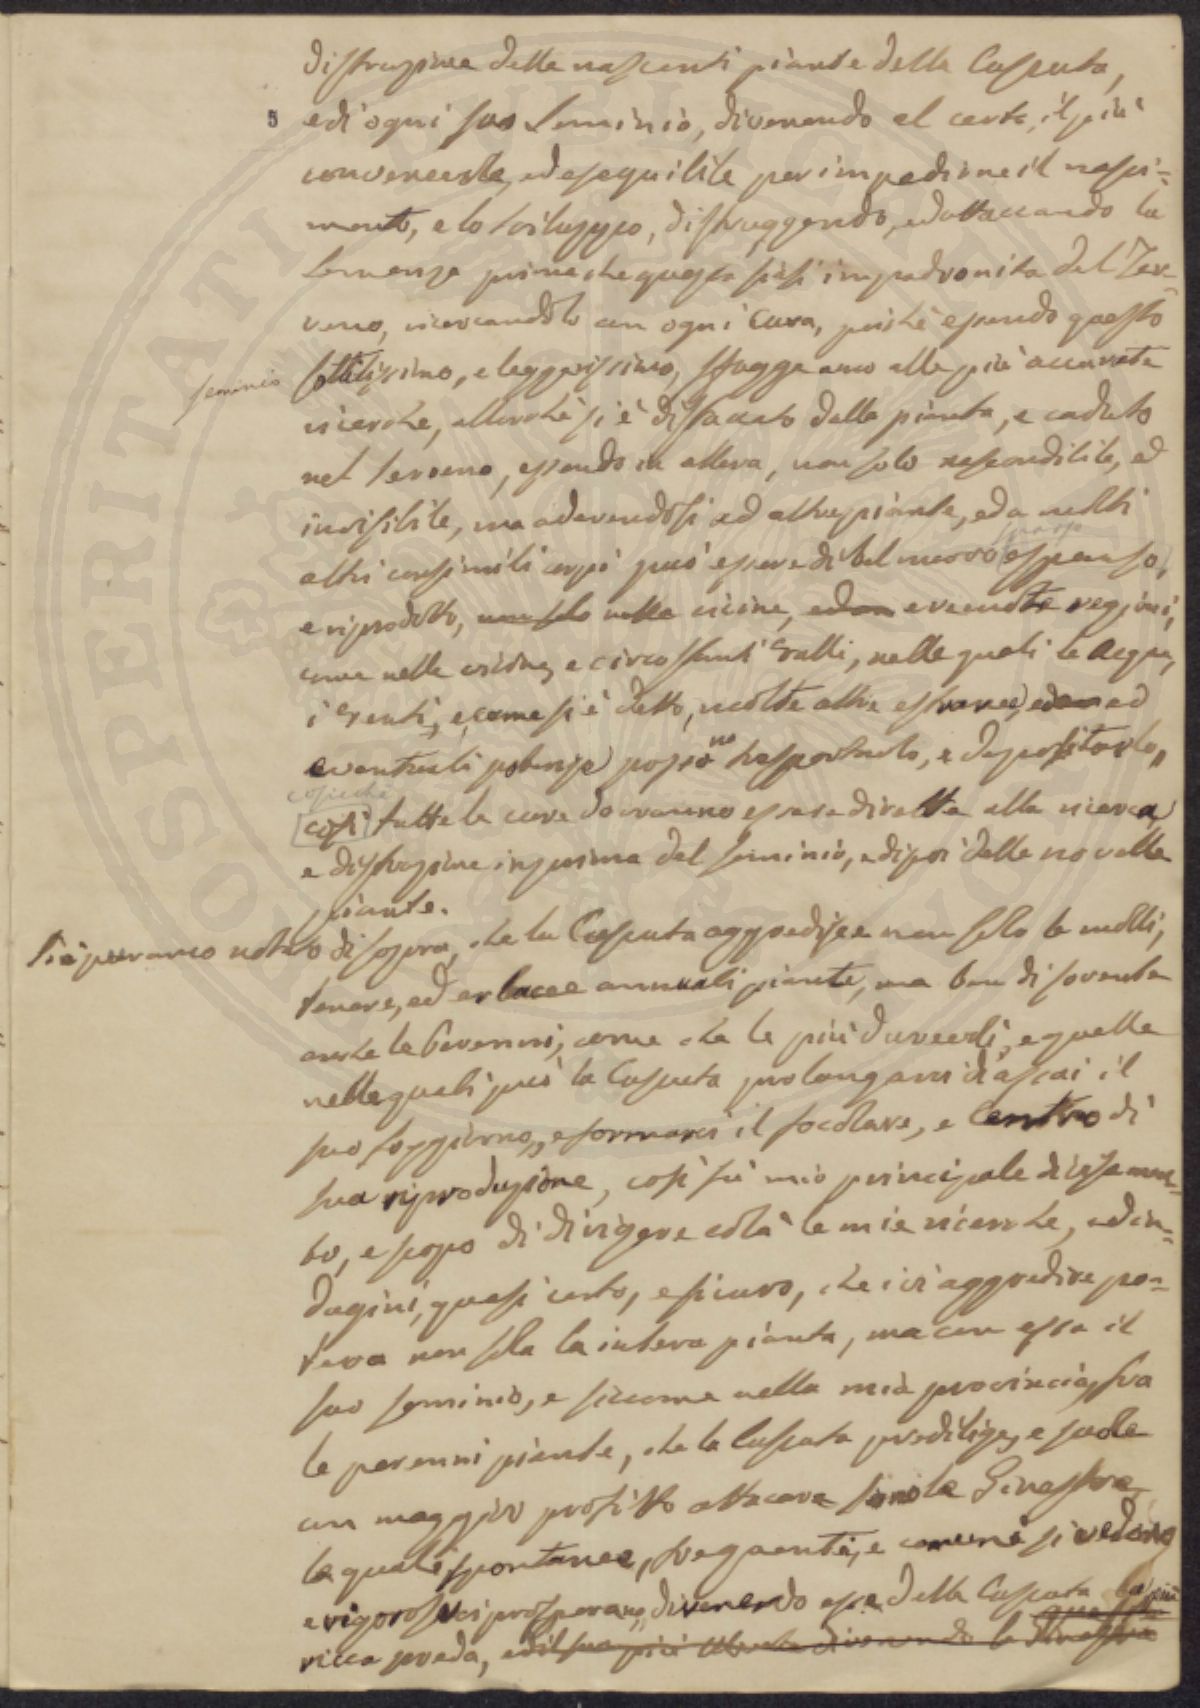 distruzione delle nascenti piante della Cuscuta,
5 e di ogni suo Seminio, divenendo al certo, il più
conveniente, ed eseguibile per impedirne il nasci=
mento, e lo sviluppo, distruggendo, ed attaccando la
Semenza prima che questa siasi impadronita del Ter=
reno, ricercandolo con ogni Cura, poichè essendo questo
seminio
sottilissimo, e leggerissimo, sfugge anco alle più accurate
ricerche, allorchè si è distaccato dalla pianta, e caduto
nel terreno, essendo in allora, non solo nascondibile, ed
invisibile, ma aderendosi ad altre piante, ed a molti
sparso
altri consimili corpi può essere di bel nuovo espanso,
e riprodotto, non solo nelle vicine, ed an e remote regioni,
come nelle vicine, e circostanti Valli, nelle quali le Acque,
i Venti, e come si è detto, molte altre estranee, ed an ed
eventuali potenze possono trasportarlo, e depositarlo,
cosicchè
così tutte le cure dovranno essere dirette alla ricerca,
e distruzione in prima del Seminio, e di poi delle novelle
piante.
Si è pur anco notato di sopra, che la Cuscuta aggredisce non solo le molli,
tenere, ed erbacee annuali piante, ma ben di sovente
anche le Perenni, come che le più durevoli, e quelle
nelle quali può la Cuscuta prolungarvi d'assai il
suo soggiorno, e formarvi il focolare, e Centro di
sua riproduzione, così fù mio principale divisamen=
to, e scopo di dirigere colà le mie ricerche, ed in=
dagini, quasi certo, e sicuro, che ivi aggredire po=
teva non solo la intera pianta, ma con essa il
suo seminio, e siccome nella mia provincia, fra
le perenni piante, che la Cuscuta predilige, e suole
con maggior profitto attaccare sono le Ginestre,
le quali spontanee, frequenti, e comuni si vedono
e vigorose vi prosperano, divenendo esse della Cuscuta la più
ricca preda, ed il suo più divenendo le Ginestre